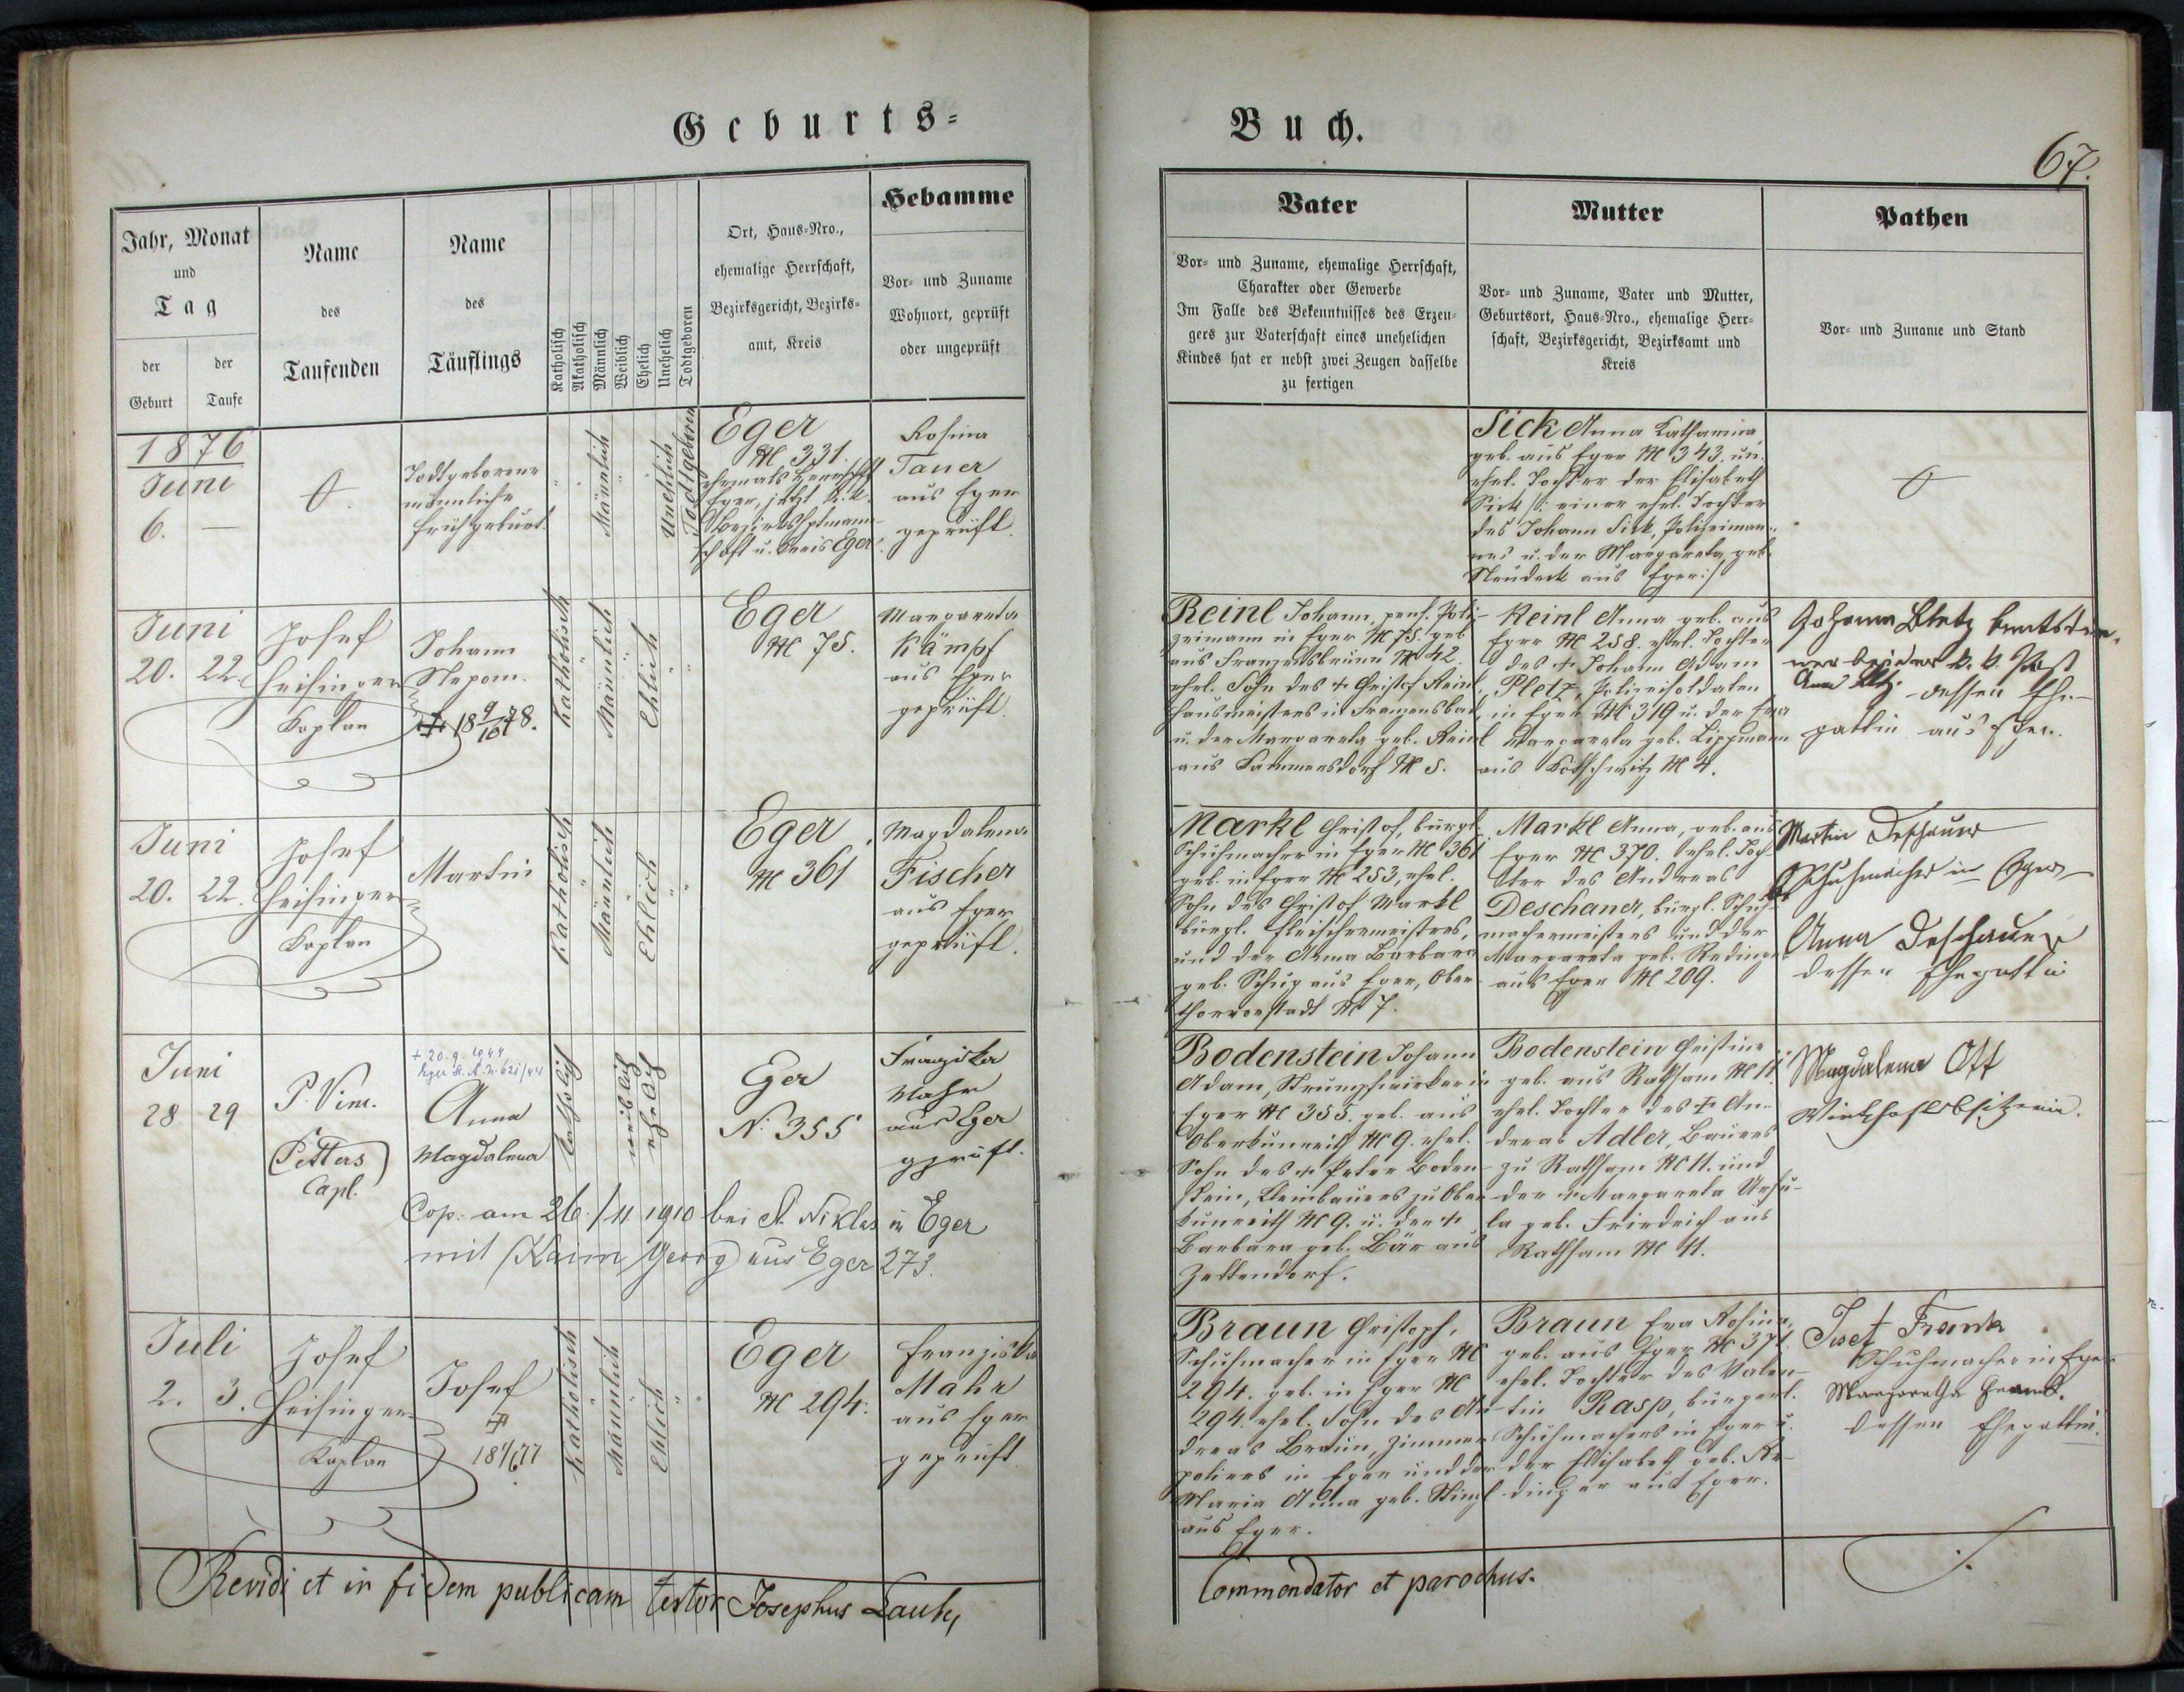 Geburts-
Buch.
67.
Jahr, Monat
und
Tag
der
Geburt
der
Taufe
Name
des
Taufenden
Name
des
Täuflings
Katholisch
Akatholisch
Männlich
Weiblich
Ehelich
Unehelich
Todtgeboren
Ort, Haus-Nro.,
ehemalige Herrschaft,
Bezirksgericht, Bezirks-
amt, Kreis
Hebamme
Vor- und Zuname
Wohnort, geprüft
oder ungeprüft
Vater
Vor- und Zuname, ehemalige Herrschaft,
Charakter oder Gewerbe
Im Falle des Bekenntnisses des Erzeu-
gers zur Vaterschaft eines unehelichen
Kindes hat er nebst zwei Zeugen dasselbe
zu fertigen
Mutter
Vor- und Zuname, Vater und Mutter,
Geburtsort, Haus-Nro., ehemalige Herr-
schaft, Bezirksgericht, Bezirksamt und
Kreis
Pathen
Vor- und Zuname und Stand
1876
Juni
6. —
Todtgeborene
männliche
Frühgeburt.
Männlich
Unehelich
Todtgeboren
Eger
№ 331.
ehemals Herrschft
Eger, jetzt k.k.
Bezirkshptmann-
schaft u. Kreis Eger.
Rosina
Tauer
aus Eger
geprüft.
Sick Anna Katharina,
geb. aus Eger № 343. un-
ehel. Tochter der Elisabeth
Sick /: einer ehel. Tochter
des Johann Sick, Polizeiman-
nes u. der Margareta, geb.
Neudeck aus Eger :/
Juni
20. 22.
Josef
Heisinger
Kaplan
Johann
Nepom.
† 18 9/10 78.
Katholisch
Männlich
Ehlich
Eger
№ 75.
Margareta
Kämpf
aus Eger
geprüft.
Reinl Johann, pens. Poli-
zeimann in Eger № 75. geb.
aus Franzensbrunn № 42.
ehel. Sohn des † Christof Reinl,
Hausmeisters in Franzensbad,
u. der Margareta geb. Reinl
aus Sammersdorf № 5.
Reinl Anna geb. aus
Eger № 258. ehel. Tochter
des † Johann Adam
Pletz, Polizeisoldaten
in Eger № 319 u. der Eva
Margareta geb. Lippmann
aus Kötschwitz № 4.
Johann Bletz Amtsdie-
ner bei der k. k. Post
Anna Bletz dessen Ehe-
gattin aus Eger.
Juni
20. 22.
Josef
Heisinger
Kaplan
Martin
Katholisch
Männlich
Ehlich
Eger
№ 361
Magdalena
Fischer
aus Eger
geprüft.
Markl Christof, bürgl.
Schuhmacher in Eger № 361
geb. in Eger № 253, ehel.
Sohn des Christof Markl
bürgl. Fleischermeisters,
und der Anna Barbara
geb. Schug aus Eger, Ober-
thorvorstadt № 7.
Markl Anna, geb. aus
Eger № 370. ehel. Toch-
ter des Andreas
Deschauer, bürgl. Schuh-
machermeisters und der
Margareta geb. Redinger
aus Eger № 209.
Martin Deschauer
Schuhmacher in Eger
Anna Deschauer
dessen Ehegattin
Juni
28 29
P. Vinc.
Petters
Capl.
† 20.9.1944
Eger St. A. N. 621/44
Anna
Magdalena
Katholisch
weiblich
ehelich
Eger
N: 355
Franziska
Mahr
aus Eger
geprüft.
Cop. am 26./11 1910 bei St. Niklas in Eger
mit Kaim Georg aus Eger 273.
Bodenstein Johann
Adam, Strumpfwirker in
Eger № 355. geb. aus
Oberkunreith № 9. ehel.
Sohn des † Peter Boden-
stein, Kleinbauers zu Ober-
kunreith № 9. u. der †
Barbara geb. Bär aus
Zettendorf.
Bodenstein Christine
geb. aus Rathsam № 11.
ehel. Tochter des † An-
dreas Adler, Bauers
zu Rathsam № 11. und
der † Margareta Ursu-
la geb. Friedrich aus
Rathsam № 11.
Magdalena Ott
Wirthschaftsbesitzerin.
Juli
2. 3.
Josef
Heisinger
Kaplan
Josef
†
18 1/6 77
Katholisch
Männlich
Ehlich
Eger
№ 294.
Franziska
Mahr
aus Eger
geprüft.
Braun Christoph,
Schuhmacher in Eger №
294. geb. in Eger №
294. ehel. Sohn des An-
dreas Braun, Zimmer-
poliers in Eger und der
Maria Anna geb. Stingl
aus Eger.
Braun Eva Rosina,
geb. aus Eger № 371.
ehel. Tochter des Valen-
tin Rasp, bürgerl.
Schuhmachers in Eger u.
der Elisabeth geb. Re-
dinger aus Eger.
Josef Frank
Schuhmacher in Eger
Margaretha Frank.
dessen Ehegattin.
Revidi et in fidem publicam testor Josephus Lauk,
Commendator et parochus.